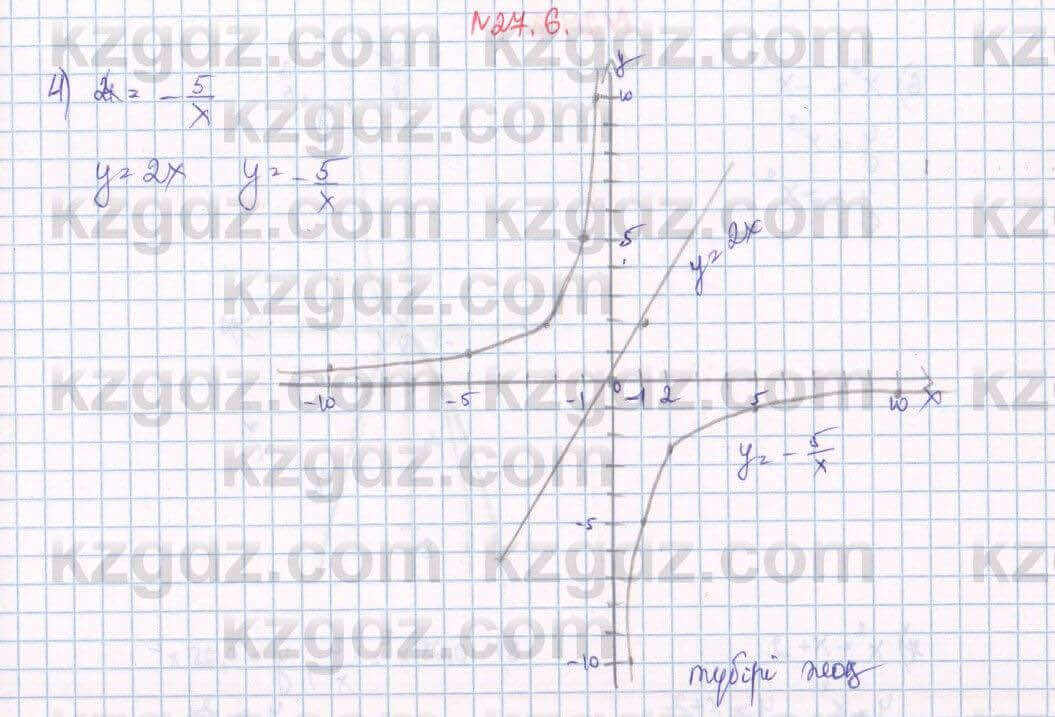 №27.6.
4) 2x = - 5/x
y = 2x y = - 5/x
y
10
5
y = 2x
-10 -5 -1 0 1 2 5 10 x
y = - 5/x
-5
-10
түбірі жоқ
kzgdz.com